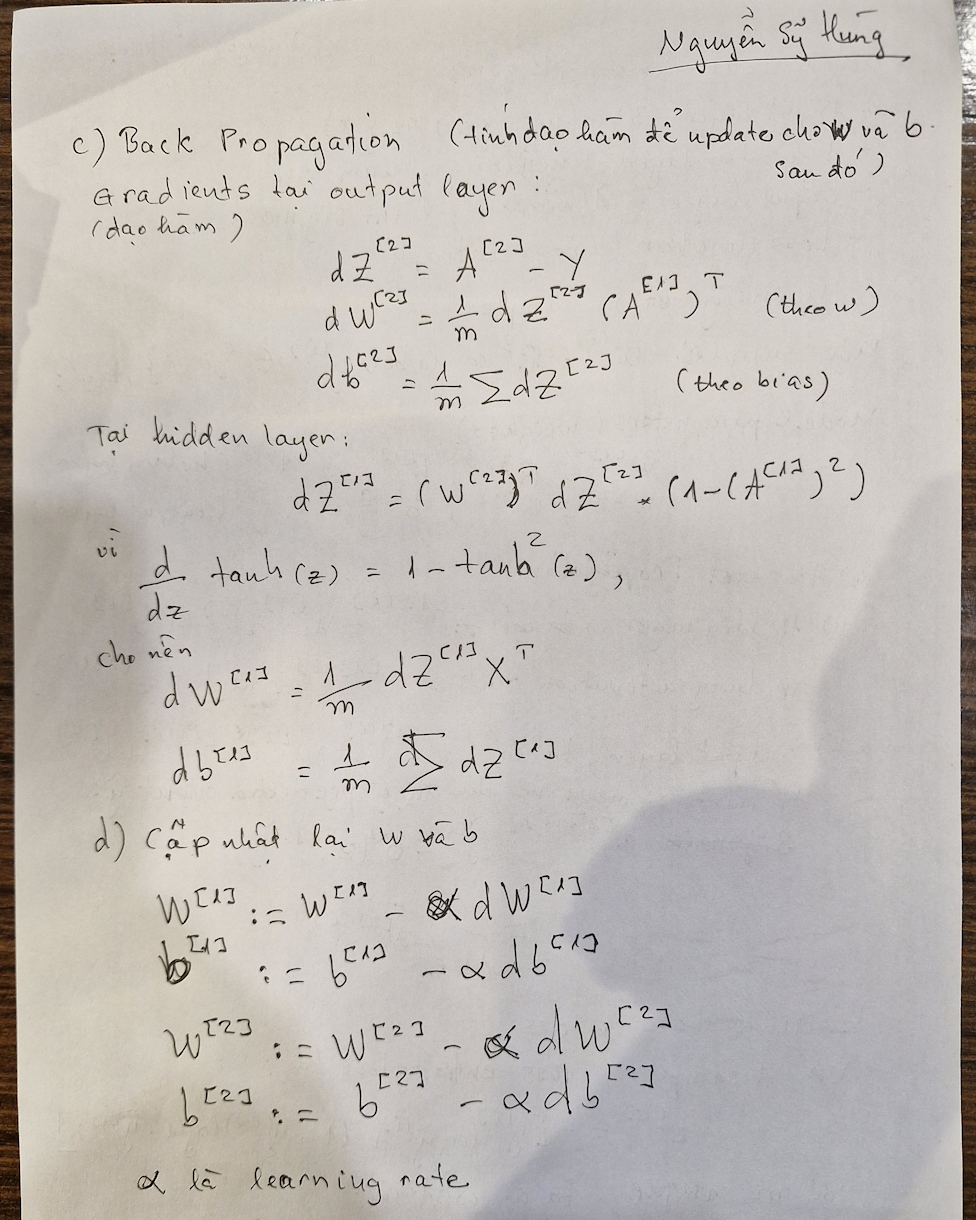 Nguyễn Sỹ Hùng
c) Back Propagation (tính đạo hàm để update cho W và b
sau đó)
Gradients tại output layer :
(đạo hàm)
dZ^[2] = A^[2] - Y
dW^[2] = 1/m dZ^[2] (A^[1])^T (theo w)
db^[2] = 1/m ∑ dZ^[2] (theo bias)
Tại hidden layer:
dZ^[1] = (W^[2])^T dZ^[2] * (1-(A^[1])^2)
vì
d/dz tanh(z) = 1 - tanh^2(z),
cho nên
dW^[1] = 1/m dZ^[1] X^T
db^[1] = 1/m ∑ dZ^[1]
d) Cập nhật lại W và b
W^[1] := W^[1] - α dW^[1]
b^[1] := b^[1] - α db^[1]
W^[2] := W^[2] - α dW^[2]
b^[2] := b^[2] - α db^[2]
α là learning rate